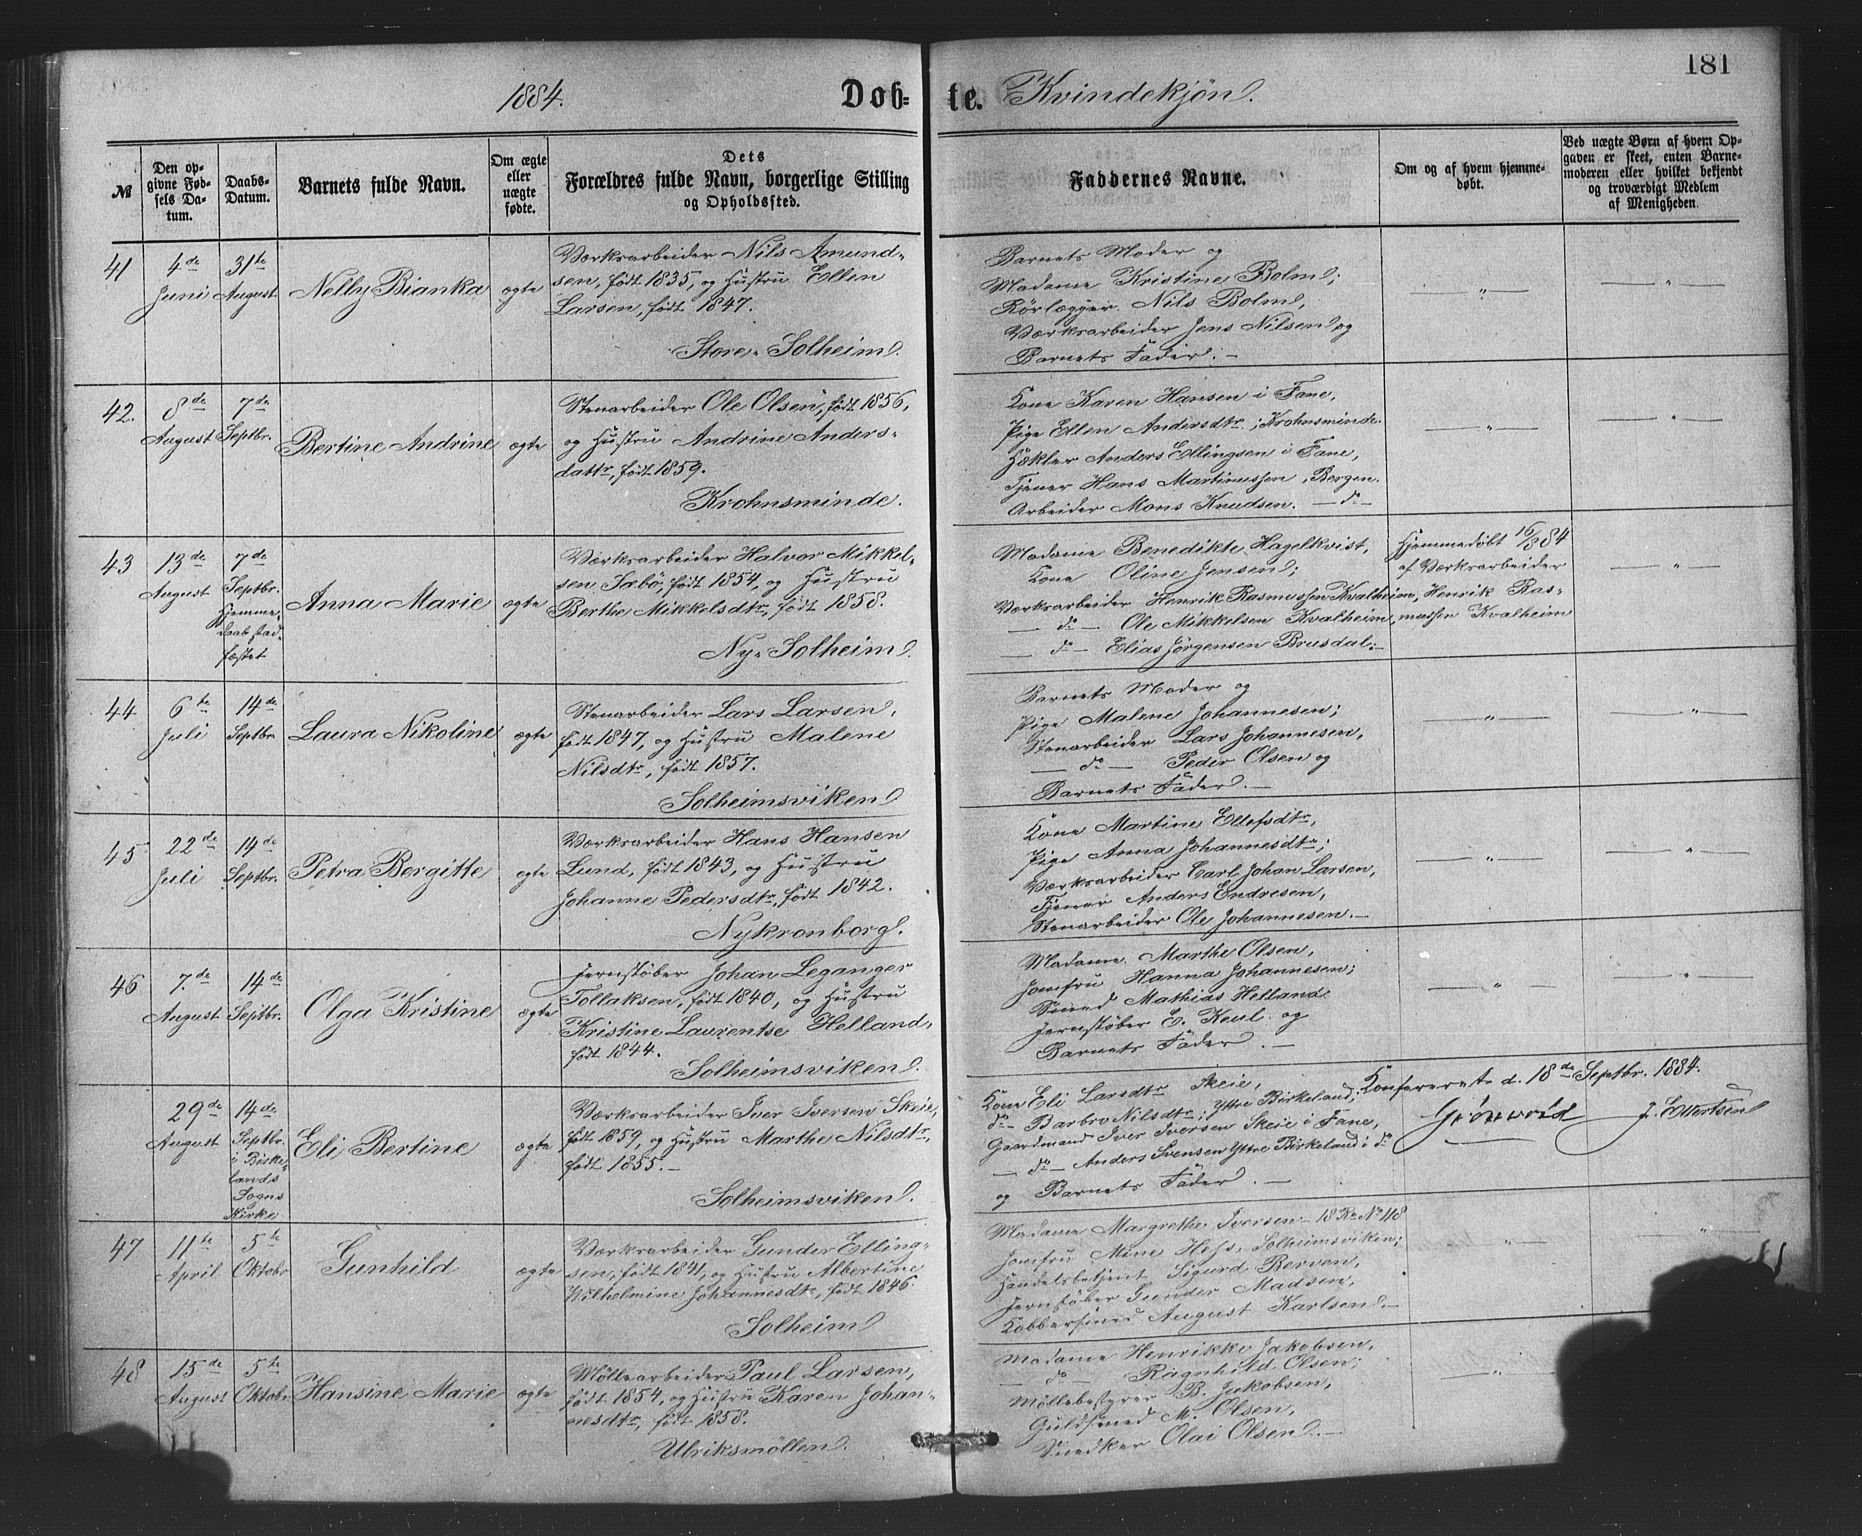 181
1884. Döb- te. Kvindekjøn.
№ | Den opgivne Fødsels Datum. | Daabs-Datum. | Barnets fulde Navn. | Om ægte eller uægte fødte. | Dets Forældres fulde Navn, borgerlige Stilling og Opholdssted. | Faddernes Navne. | Om og af hvem hjemmedøbt. | Ved uægte Børn af hvem Opgaven er skeet, enten Barnemoderen eller hvilket bekjendt og troværdigt Medlem af Menigheden.
41 | 4de Juni | 31te August | Nelly Bianka | ægte
Værksarbeider Nils Amund-
sen, født 1835, og Hustru Ellen
Larsen, født 1847.
Store-Solheim.
Barnets Moder og
Madame Kristine Bolm;
Rörlægger Nils Bolm,
Værksarbeider Jens Nilsen og
Barnets Fader. —
— " — | — " —
42. | 8de August | 7de Septbr. | Bertine Andrine | ægte
Stenarbeider Ole Olsen, født 1856,
og Hustru Andrine Anders-
datr, født 1859.
Krohnsminde.
Kone Karen Hansen i Fane,
Pige Ellen Andersdtr. i Krohnsminde.
Hækler Anders Ellingsen i Fane,
Tjener Hans Martinussen, Bergen.
Arbeider Mons Knudsen. — do —
— " — | — " —
43 | 13de August | 7de Septbr. Hjemme-daab stad-fæstet | Anna Marie | ægte
Værksarbeider Halvor Mikkel-
sen Sæbö, født 1854, og Hustru
Berthe Mikkelsdtr, født 1858.
Ny-Solheim.
Madame Benedikte Hagelkvist,
Kone Oline Jensen;
Værksarbeider Henrik Rasmussen Kvalheim,
— do — Ole Mikkelsen Kvalheim,
— do — Elias Jørgensen Brusdal. —
Hjemmedøbt 16/8 84
af Værksarbeider
Henrik Ras-
mussen Kvalheim
— " —
44 | 6te Juli | 14de Septbr. | Laura Nikoline | ægte
Stenarbeider Lars Larsen,
født 1847, og Hustru Malene
Nilsdtr, født 1857.
Solheimsviken
Barnets Moder og
Pige Malene Johannesen;
Stenarbeider Lars Johannesen,
— do — Peder Olsen og
Barnets Fader. —
— " — | — " —
45 | 22de Juli | 14de Septbr. | Petra Bergitte | ægte
Værksarbeider Hans Hansen
Lund, født 1843, og Hustru
Johanne Pedersdtr, født 1842.
Nykronborg.
Kone Martine Ellefsdtr,
Pige Anna Johannesdtr;
Værksarbeider Carl Johan Larsen,
Tjener Anders Endresen,
Stenarbeider Ole Johannesen. —
— " — | — " —
46 | 7.de August | 14de Septbr. | Olga Kristine | ægte
Jernstøber Johan Leganger
Tollaksen, født 1840, og Hustru
Kristine Laurentse Helland,
født 1844.
Solheimsviken.
Madame Marthe Olsen,
Jomfru Hanna Johannesen;
Smed Mathias Helland
Jernstøber E. Keul. og
Barnets Fader. —
— " — | — " —
29de August | 14de Septbr. i Birke-lands Sogns Kirke | Eli Bertine | ægte
Værksarbeider Iver Iversen Skeie,
født 1859, og Hustru Marthe Nilsdtr,
født 1855. —
Solheimsviken.
Kone Eli Larsdtr Skeie,
do Barbro Nilsdtr, Yttre Birkeland;
Gaardmand Iver Iversen Skeie i Fane,
— do — Anders Svensen Yttre Birkeland i do
og Barnets Fader. —
Konfereret d. 18de Septbr. 1884.
J. Evertsen
47 | 11te April | 5te Oktobr | Gunhild | ægte
Værksarbeider Gunder Elling-
sen, født 1841, og Hustru Albertine
Wilhelmine Johannesdtr, født 1846.
Solheim
Madame Margrethe Iversen — 18 Kr. No 48
Jomfru Mine Hess, Solheimsviken;
Handelsbetjent Sigurd Berven,
Jernstøber Gunder Madsen,
Kobbersmed August Karlsen. —
— " — | "
48 | 15de August | 5te Oktobr. | Hansine Marie | ægte
Møllearbeider Paul Larsen,
født 1854, og Hustru Karen Johan-
nesdtr, født 1858.
Ulriksmøllen.
Madame Henrikke Jakobsen,
— do — Ragnhild Olsen;
Møllebestyrer B. Jakobsen,
Guldsmed M. Olsen,
Snedker Olai Olsen. —
— " —